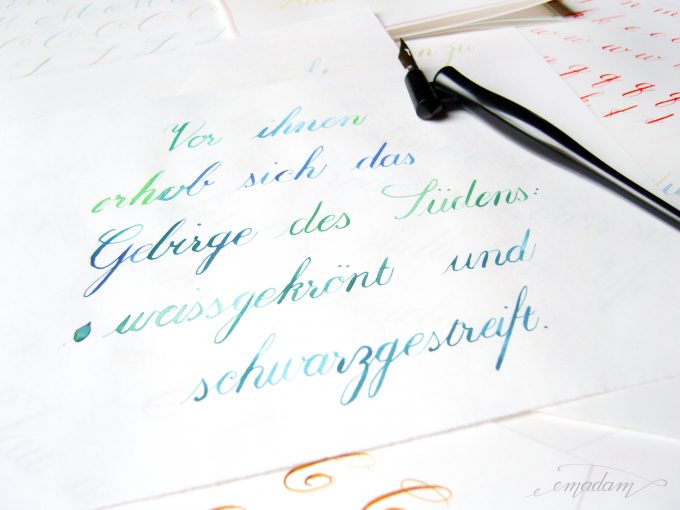 Vor ihnen
erhob sich das
Gebirge des Südens:
weissgekrönt und
schwarzgestreift.
emadam